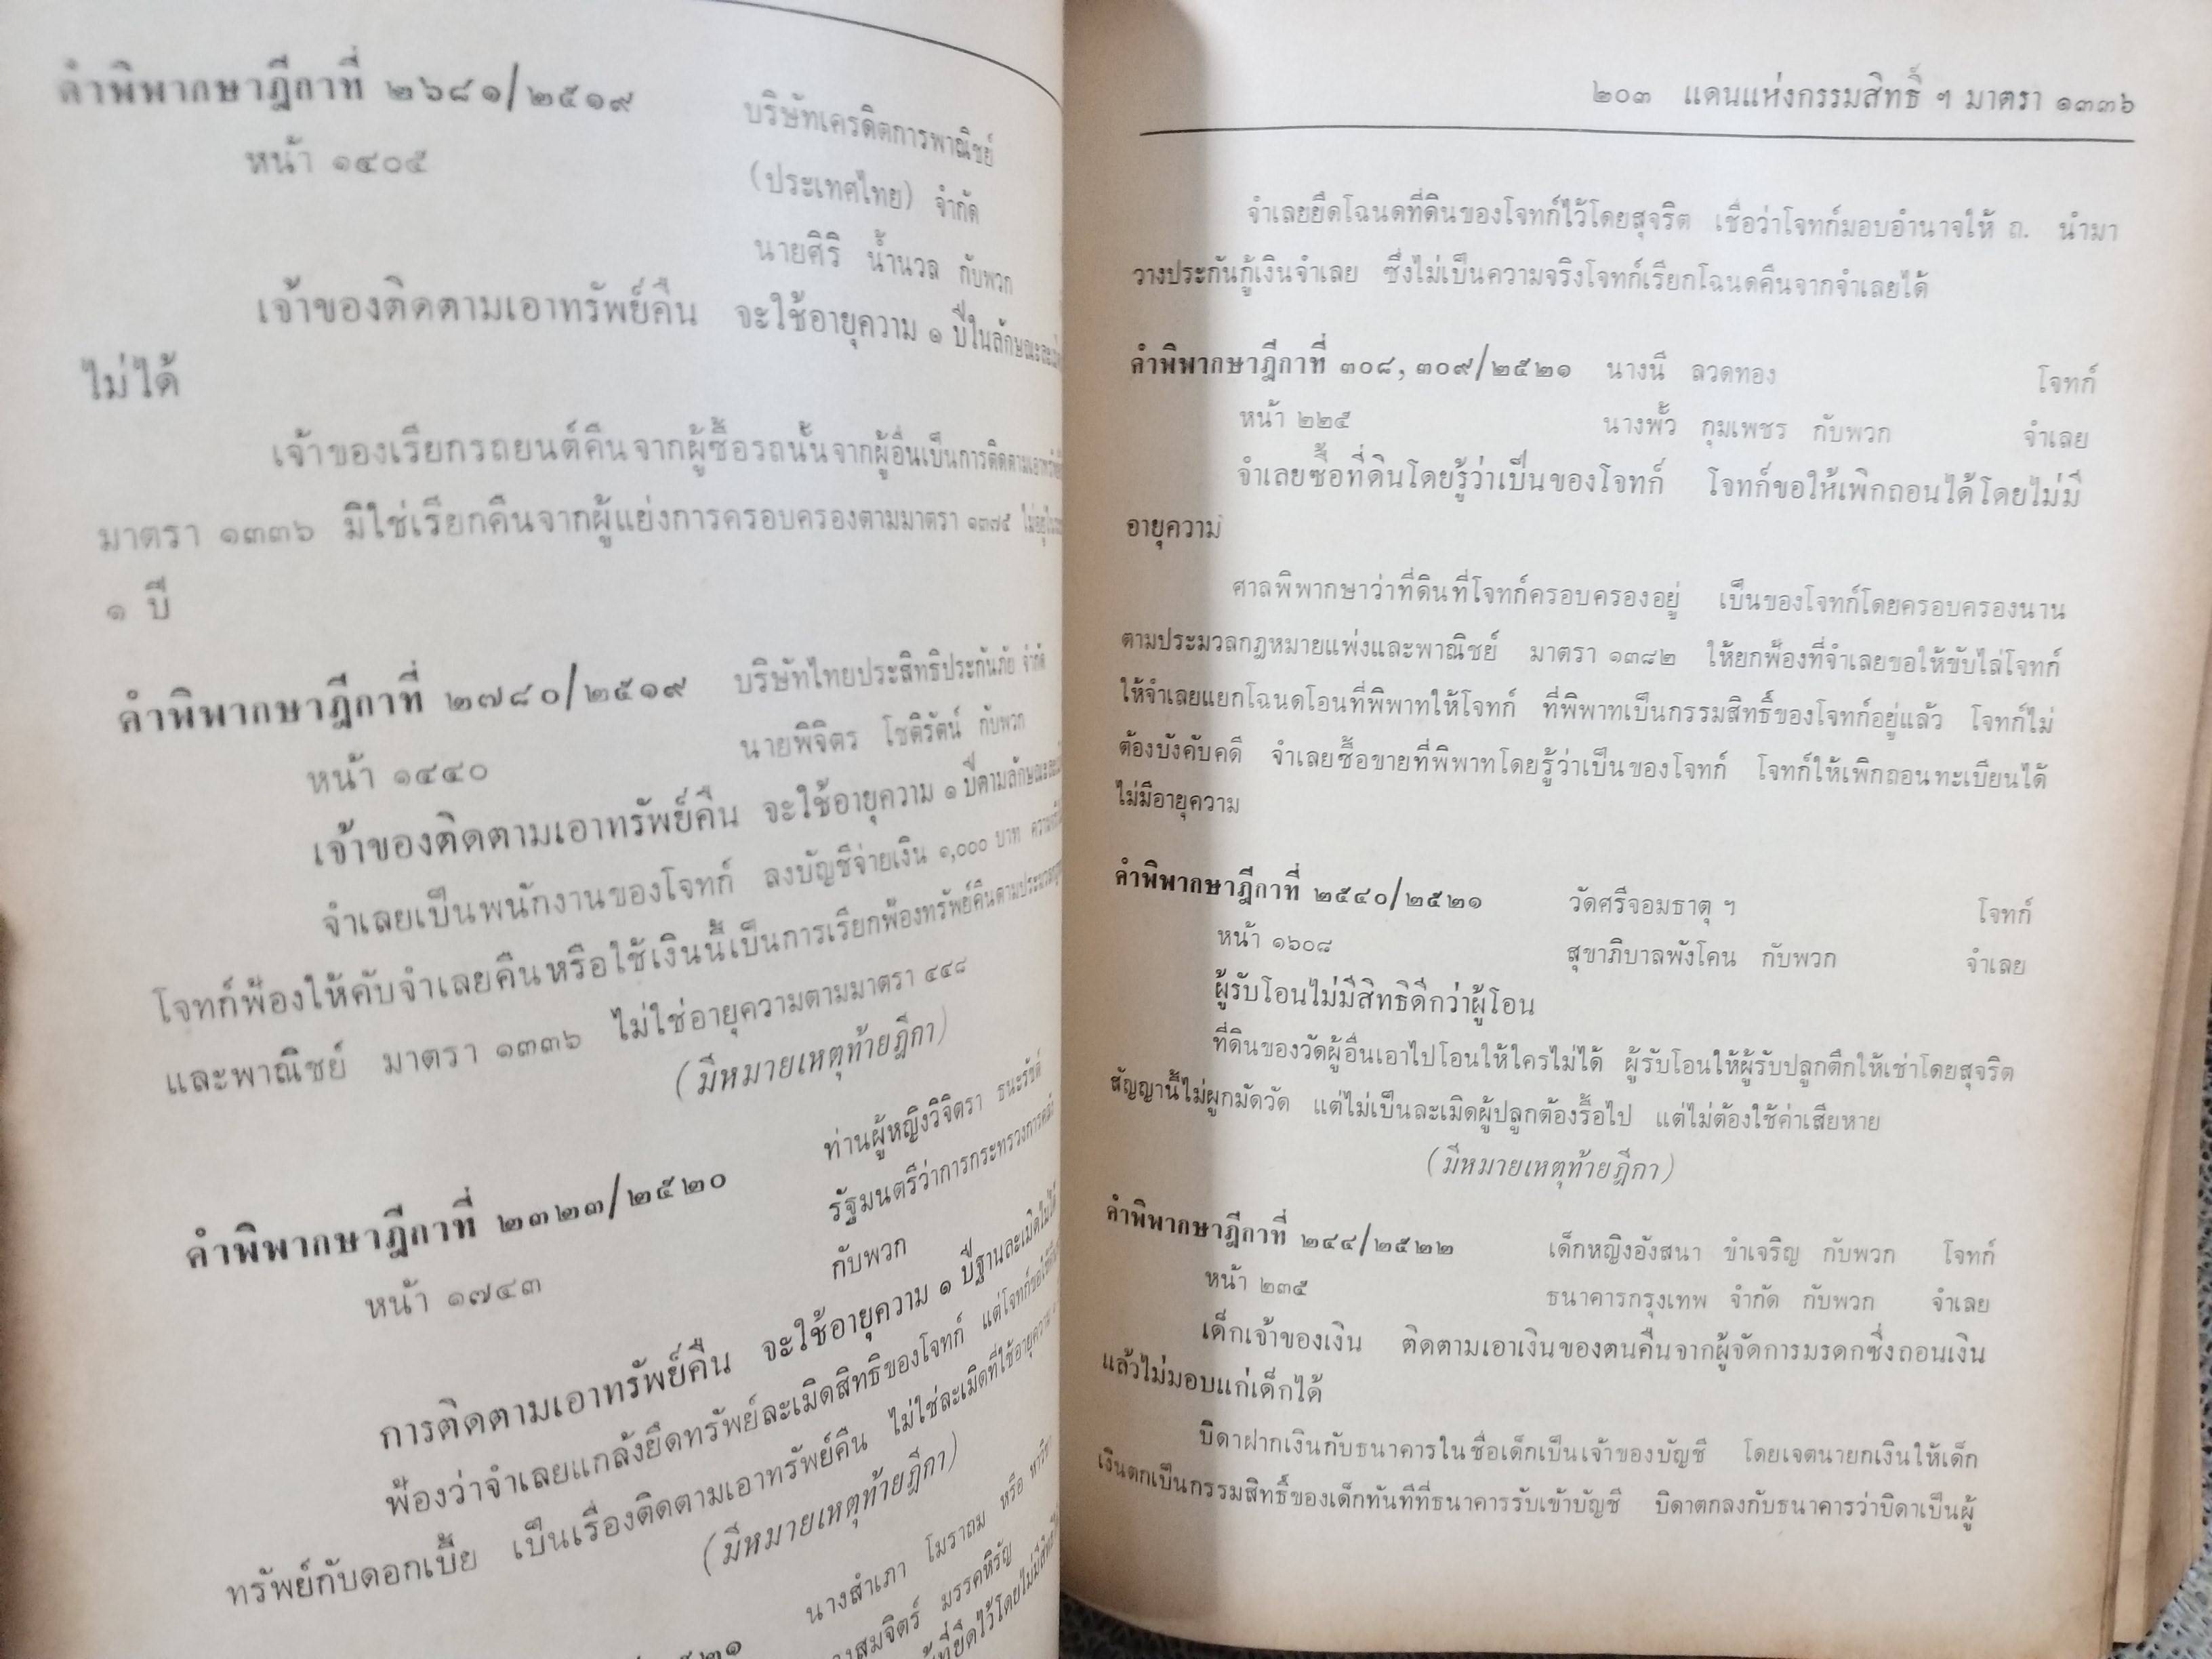 คำพิพากษาฎีกาที่ ๒๖๘๑/๒๕๑๙ บริษัทเครดิตการพาณิชย์
หน้า ๑๔๐๕ (ประเทศไทย) จำกัด
นายศิริ น้ำนวล กับพวก
เจ้าของติดตามเอาทรัพย์คืน จะใช้อายุความ ๑ ปีในลักษณะ
ไม่ได้
เจ้าของเรียกรถยนต์คืนจากผู้ซื้อรถนั้นจากผู้อื่นเป็นการติดตาม
มาตรา ๑๓๓๖ มิใช่เรียกคืนจากผู้แย่งการครอบครองตามมาตรา ๑๓๗๕
๑ ปี
คำพิพากษาฎีกาที่ ๒๗๘๐/๒๕๑๙ บริษัทไทยประสิทธิประกันภัย จำกัด
หน้า ๑๔๔๐ นายพิจิตร โชติรัตน์ กับพวก
เจ้าของติดตามเอาทรัพย์คืน จะใช้อายุความ ๑ ปีตามลักษณะ
จำเลยเป็นพนักงานของโจทก์ ลงบัญชีจ่ายเงิน ๑,๐๐๐ บาท
โจทก์ฟ้องให้คับจำเลยคืนหรือใช้เงินนี้เป็นการเรียกฟ้องทรัพย์คืนตาม
และพาณิชย์ มาตรา ๑๓๓๖ ไม่ใช่อายุความตามมาตรา ๔๔๘
(มีหมายเหตุท้ายฎีกา)
คำพิพากษาฎีกาที่ ๒๓๒๓/๒๕๒๐ ท่านผู้หญิงวิจิตรา ธนะรัชต์
หน้า ๑๗๔๓ รัฐมนตรีว่าการกระทรวงการคลัง
กับพวก
การติดตามเอาทรัพย์คืน จะใช้อายุความ ๑ ปีฐานละเมิดไม่ได้
ฟ้องว่าจำเลยแกล้งยึดทรัพย์ละเมิดสิทธิของโจทก์ แต่โจทก์ขอ
ทรัพย์กับดอกเบี้ย เป็นเรื่องติดตามเอาทรัพย์คืน ไม่ใช่ละเมิดที่ใช้อายุความ
(มีหมายเหตุท้ายฎีกา)
นางสำเภา โมราถม หรือ
สมจิตร์ มรรคหิรัญ
ที่ยึดไว้โดยไม่มี
๒๐๓ แดนแห่งกรรมสิทธิ์ ฯ มาตรา ๑๓๓๖
จำเลยยึดโฉนดที่ดินของโจทก์ไว้โดยสุจริต เชื่อว่าโจทก์มอบอำนาจให้ ถ. นำมา
วางประกันกู้เงินจำเลย ซึ่งไม่เป็นความจริงโจทก์เรียกโฉนดคืนจากจำเลยได้
คำพิพากษาฎีกาที่ ๓๐๘, ๓๐๙/๒๕๒๑ นางนี ลวดทอง โจทก์
หน้า ๒๒๕ นางพั้ว กุมเพชร กับพวก จำเลย
จำเลยซื้อที่ดินโดยรู้ว่าเป็นของโจทก์ โจทก์ขอให้เพิกถอนได้โดยไม่มี
อายุความ
ศาลพิพากษาว่าที่ดินที่โจทก์ครอบครองอยู่ เป็นของโจทก์โดยครอบครองนาน
ตามประมวลกฎหมายแพ่งและพาณิชย์ มาตรา ๑๓๘๒ ให้ยกฟ้องที่จำเลยขอให้ขับไล่โจทก์
ให้จำเลยแยกโฉนดโอนที่พิพาทให้โจทก์ ที่พิพาทเป็นกรรมสิทธิ์ของโจทก์อยู่แล้ว โจทก์ไม่
ต้องบังคับคดี จำเลยซื้อขายที่พิพาทโดยรู้ว่าเป็นของโจทก์ โจทก์ให้เพิกถอนทะเบียนได้
ไม่มีอายุความ
คำพิพากษาฎีกาที่ ๒๕๔๐/๒๕๒๑ วัดศรีจอมธาตุ ฯ โจทก์
หน้า ๑๖๐๘ สุขาภิบาลพังโคน กับพวก จำเลย
ผู้รับโอนไม่มีสิทธิดีกว่าผู้โอน
ที่ดินของวัดผู้อื่นเอาไปโอนให้ใครไม่ได้ ผู้รับโอนให้ผู้รับปลูกตึกให้เช่าโดยสุจริต
สัญญานี้ไม่ผูกมัดวัด แต่ไม่เป็นละเมิดผู้ปลูกต้องรื้อไป แต่ไม่ต้องใช้ค่าเสียหาย
(มีหมายเหตุท้ายฎีกา)
คำพิพากษาฎีกาที่ ๒๔๔/๒๕๒๒ เด็กหญิงอังสนา ขำเจริญ กับพวก โจทก์
หน้า ๒๓๕ ธนาคารกรุงเทพ จำกัด กับพวก จำเลย
เด็กเจ้าของเงิน ติดตามเอาเงินของตนคืนจากผู้จัดการมรดกซึ่งถอนเงิน
แล้วไม่มอบแก่เด็กได้
บิดาฝากเงินกับธนาคารในชื่อเด็กเป็นเจ้าของบัญชี โดยเจตนายกเงินให้เด็ก
เงินตกเป็นกรรมสิทธิ์ของเด็กทันทีที่ธนาคารรับเข้าบัญชี บิดาตกลงกับธนาคารว่าบิดาเป็นผู้